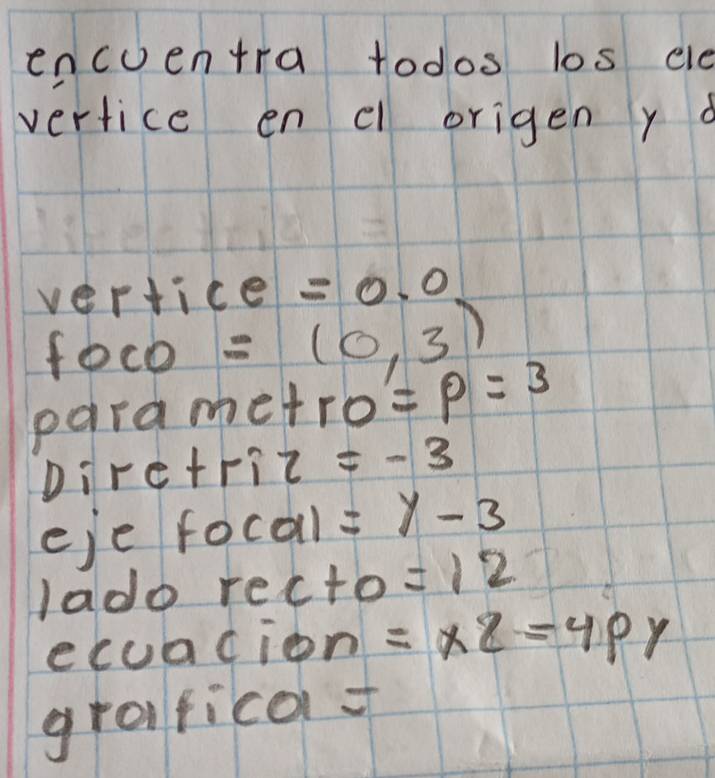 encuentra todos los ele
vertice en el origen y d
vertice = 0.0
foco = (0,3)
parametro = p = 3
Diretriz = -3
eje focal = y - 3
lado recto = 12
ecuacion = x2 = 4py
grafica =